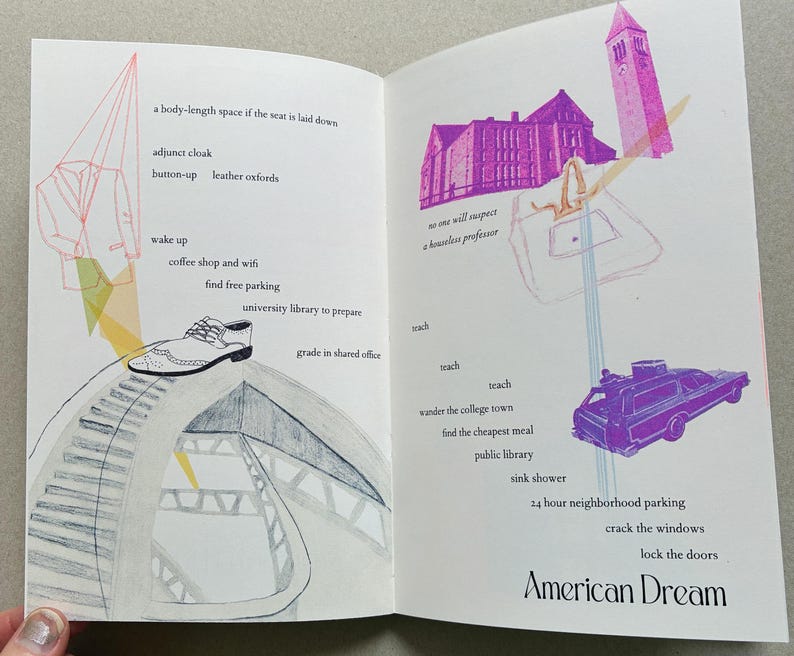 a body-length space if the seat is laid down
adjunct cloak
button-up leather oxfords
wake up
coffee shop and wifi
find free parking
university library to prepare
grade in shared office
no one will suspect
a houseless professor
teach
teach
teach
wander the college town
find the cheapest meal
public library
sink shower
24 hour neighborhood parking
crack the windows
lock the doors
American Dream